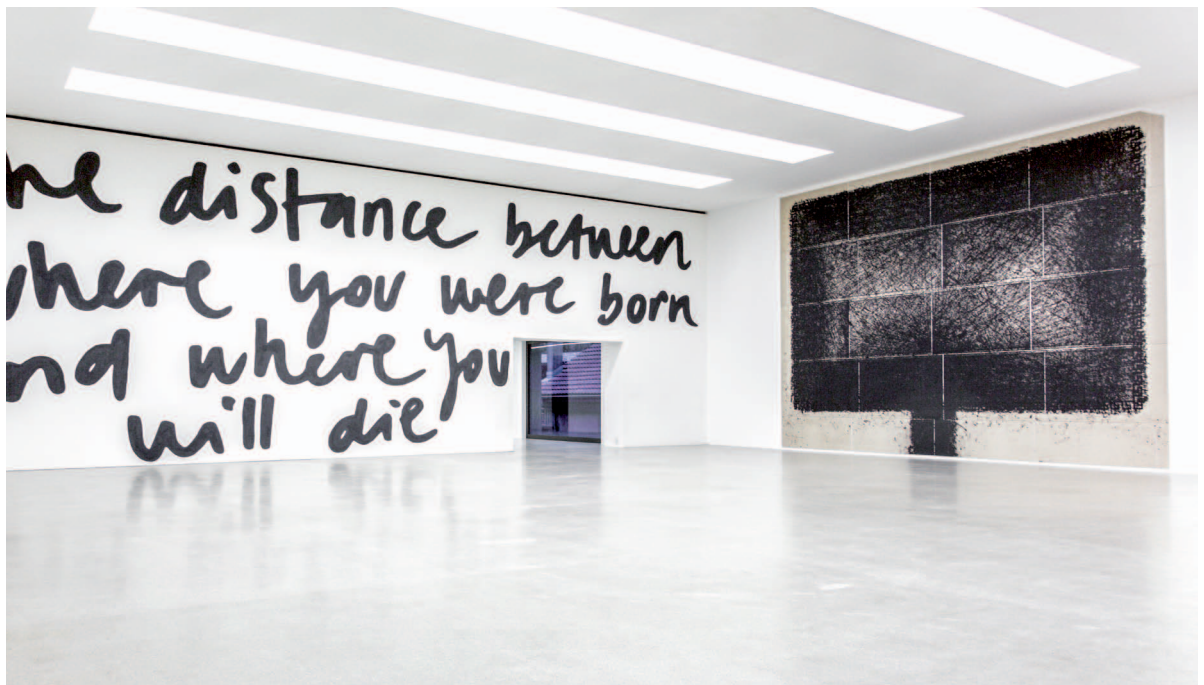 he distance between
where you were born
nd where you
will die